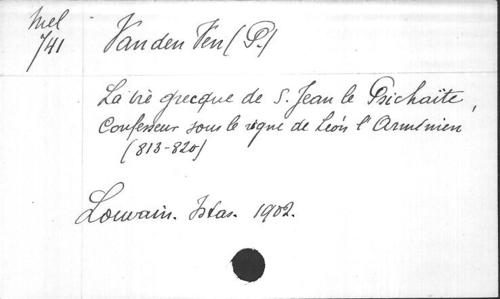 Mel
741
Van den Ven (P.)
La vie grecque de S. Jean le Psichaïte,
Confesseur sous le règne de Léon l'Arménien
(813-820)
Louvain. Istas. 1902.